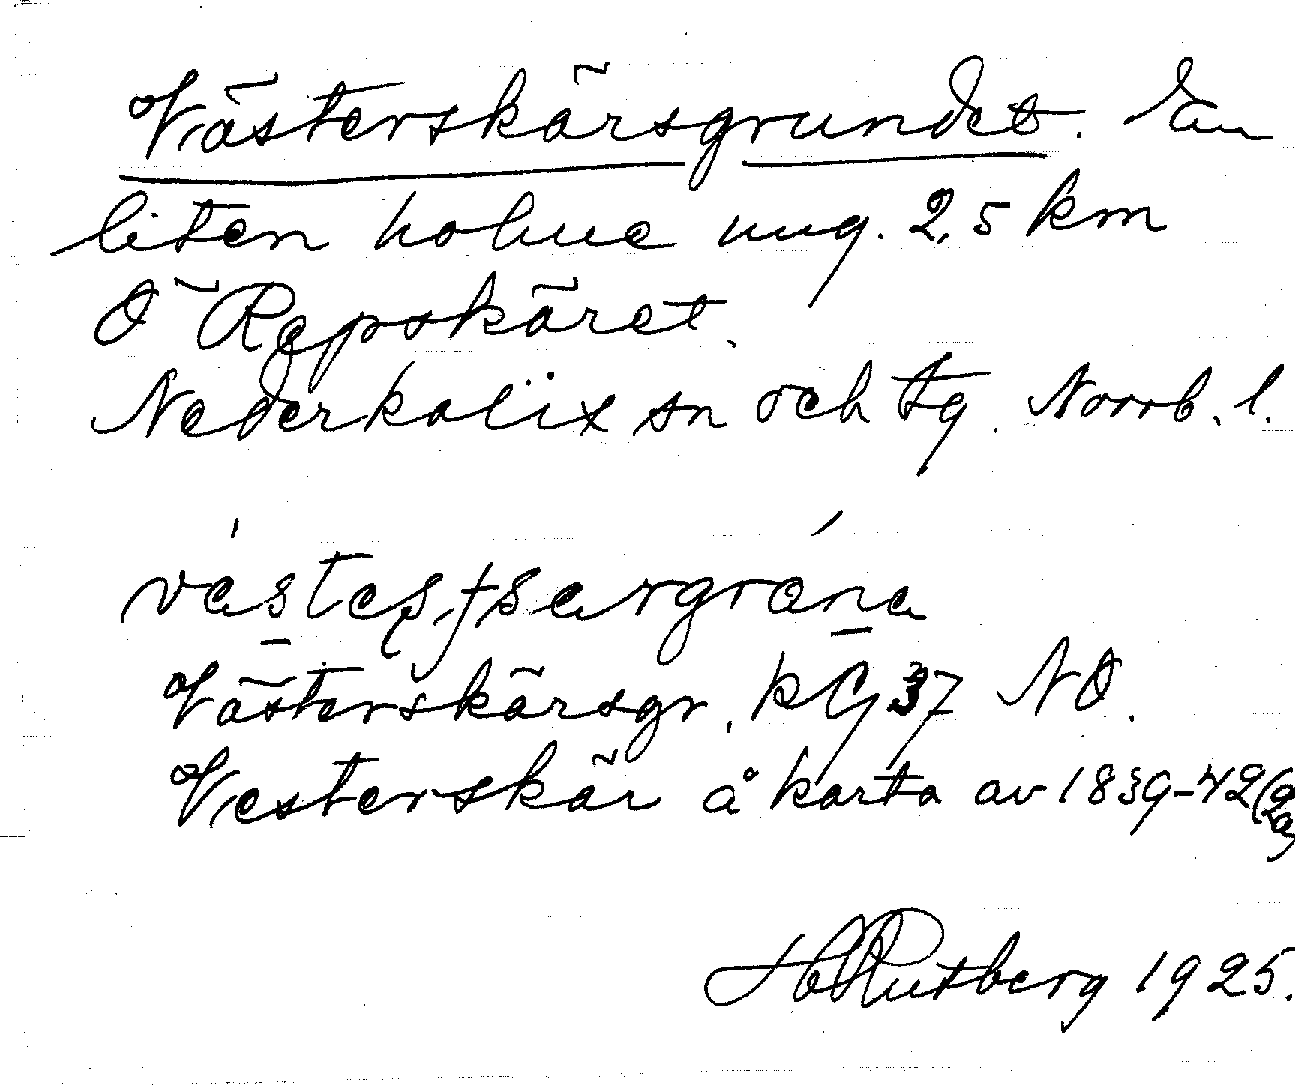 Västerskärsgrundet. En
liten holme ung. 2,5 km
O Repskäret.
Nederkalix sn och tg. Norrb. l.
Västerskärsgr. kG 37 NO.
Vesterskär å karta av 1839-42
Rutberg 1925.